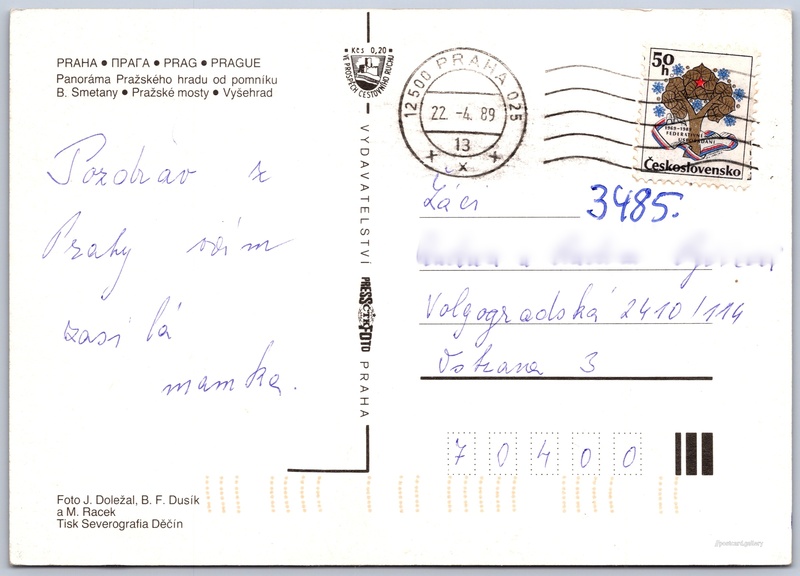 PRAHA ● ПРАГА ● PRAG ● PRAGUE
Panoráma Pražského hradu od pomníku
B. Smetany ● Pražské mosty ● Vyšehrad
Pozdrav z
Prahy vám
zasílá
mamka.
Foto J. Doležal, B. F. Dusík
a M. Racek
Tisk Severografia Děčín
Kčs 0,20
VE PROSPĚCH CESTOVNÍHO RUCHU
VYDAVATELSTVÍ
PRESSFOTO
ČTK
PRAHA
12500 PRAHA 025
22. -4. 89
13
50
h
1969-1989
FEDERATIVNÍ
USPOŘÁDÁNÍ
Československo
Žáci
3485.
Volgogradská 2410/114
Ostrava 3
70400